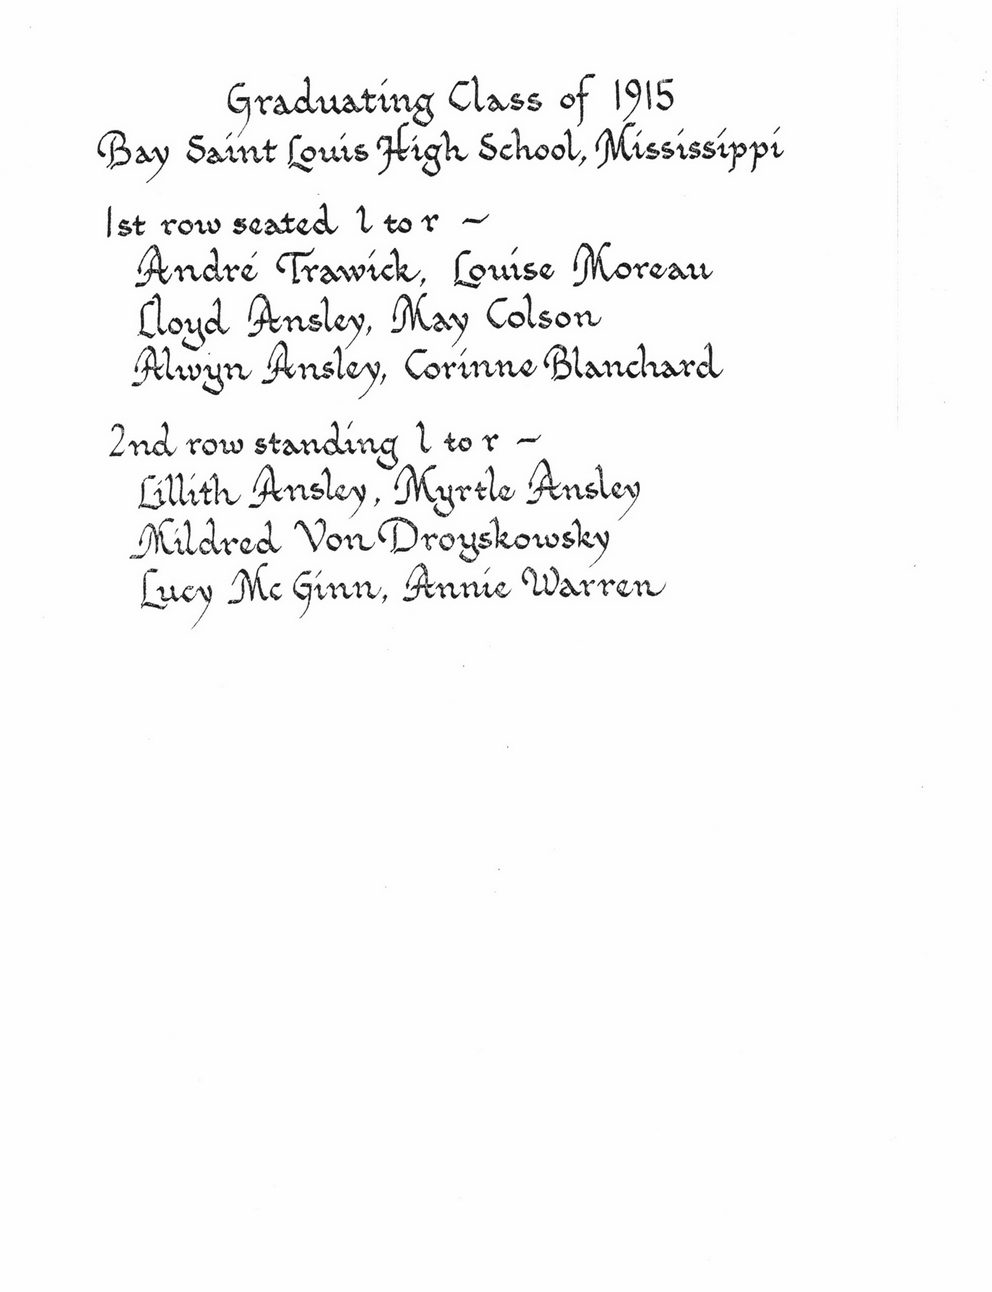 Graduating Class of 1915
Bay Saint Louis High School, Mississippi
1st row seated l to r ~
André Trawick, Louise Moreau
Lloyd Ansley, May Colson
Alwyn Ansley, Corinne Blanchard
2nd row standing l to r ~
Lillith Ansley, Myrtle Ansley
Mildred Von Droyskowsky
Lucy Mc Ginn, Annie Warren